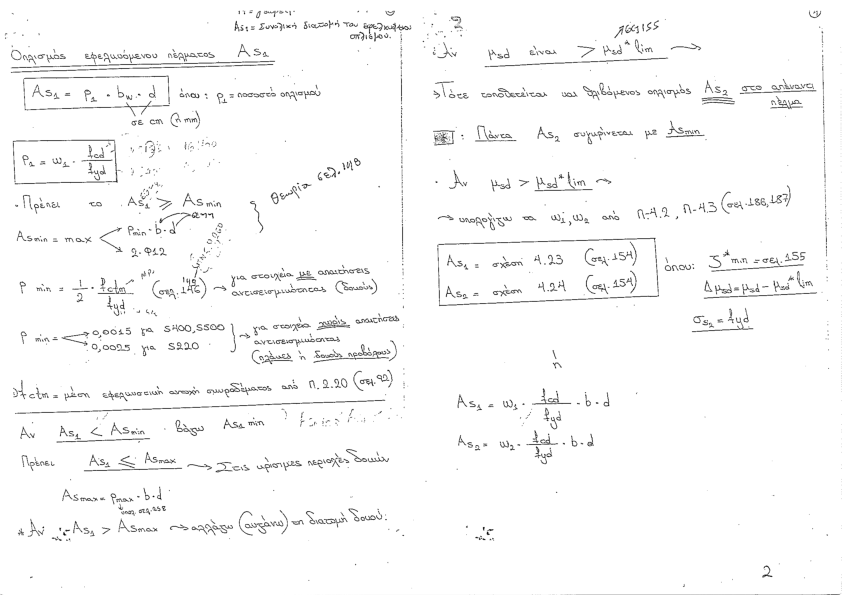 As₁ = Συνολική διατομή του εφελκυόμενου οπλισμού.
Οπλισμός εφελκυόμενου πέλματος As₁
As₁ = ρ₁ · bw · d όπου : ρ₁ = ποσοστό οπλισμού
σε cm (ή mm)
ρ₁ = ω₁ · fcd / fyd
· Πρέπει το As₁ ≥ Asmin
Θεωρία σελ. 148
Asmin = max
ρmin · b · d
2 · Φ12
ρ min = 1/2 · fctm / fyd (σελ. 146) → για στοιχεία με απαιτήσεις αντισεισμικότητας (δοκούς)
ρ min =
0,0015 για S400, S500
0,0025 για S220
→ για στοιχεία χωρίς απαιτήσεις αντισεισμικότητας
(πλάκες ή δοκούς προβόλους)
fctm = μέση εφελκυστική αντοχή σκυροδέματος από Π. 2.20 (σελ. 92)
Αν As₁ < Asmin βάζω As₁ min
Πρέπει As₁ ≤ Asmax → Στις κρίσιμες περιοχές δοκών
Asmax = ρmax · b · d
* Αν As₁ > Asmax → αλλάζω (αυξάνω) τη διατομή δοκού.
2
σελ 155
· Αν μsd είναι > μsd* lim →
→ Τότε τοποθετείται και θλιβόμενος οπλισμός As₂ στο απέναντι πέλμα
* : Πάντα As₂ συγκρίνεται με Asmin
· Αν μsd > μsd* lim →
→ υπολογίζω τα ω₁, ω₂ από Π-4.2, Π-4.3 (σελ. 186, 187)
As₁ = σχέση 4.23 (σελ. 154)
As₂ = σχέση 4.24 (σελ. 154)
όπου: ζ* min = σελ. 155
Δμsd = μsd - μsd* lim
σs₂ = fyd
ή
As₁ = ω₁ · fcd / fyd · b · d
As₂ = ω₂ · fcd / fyd · b · d
2